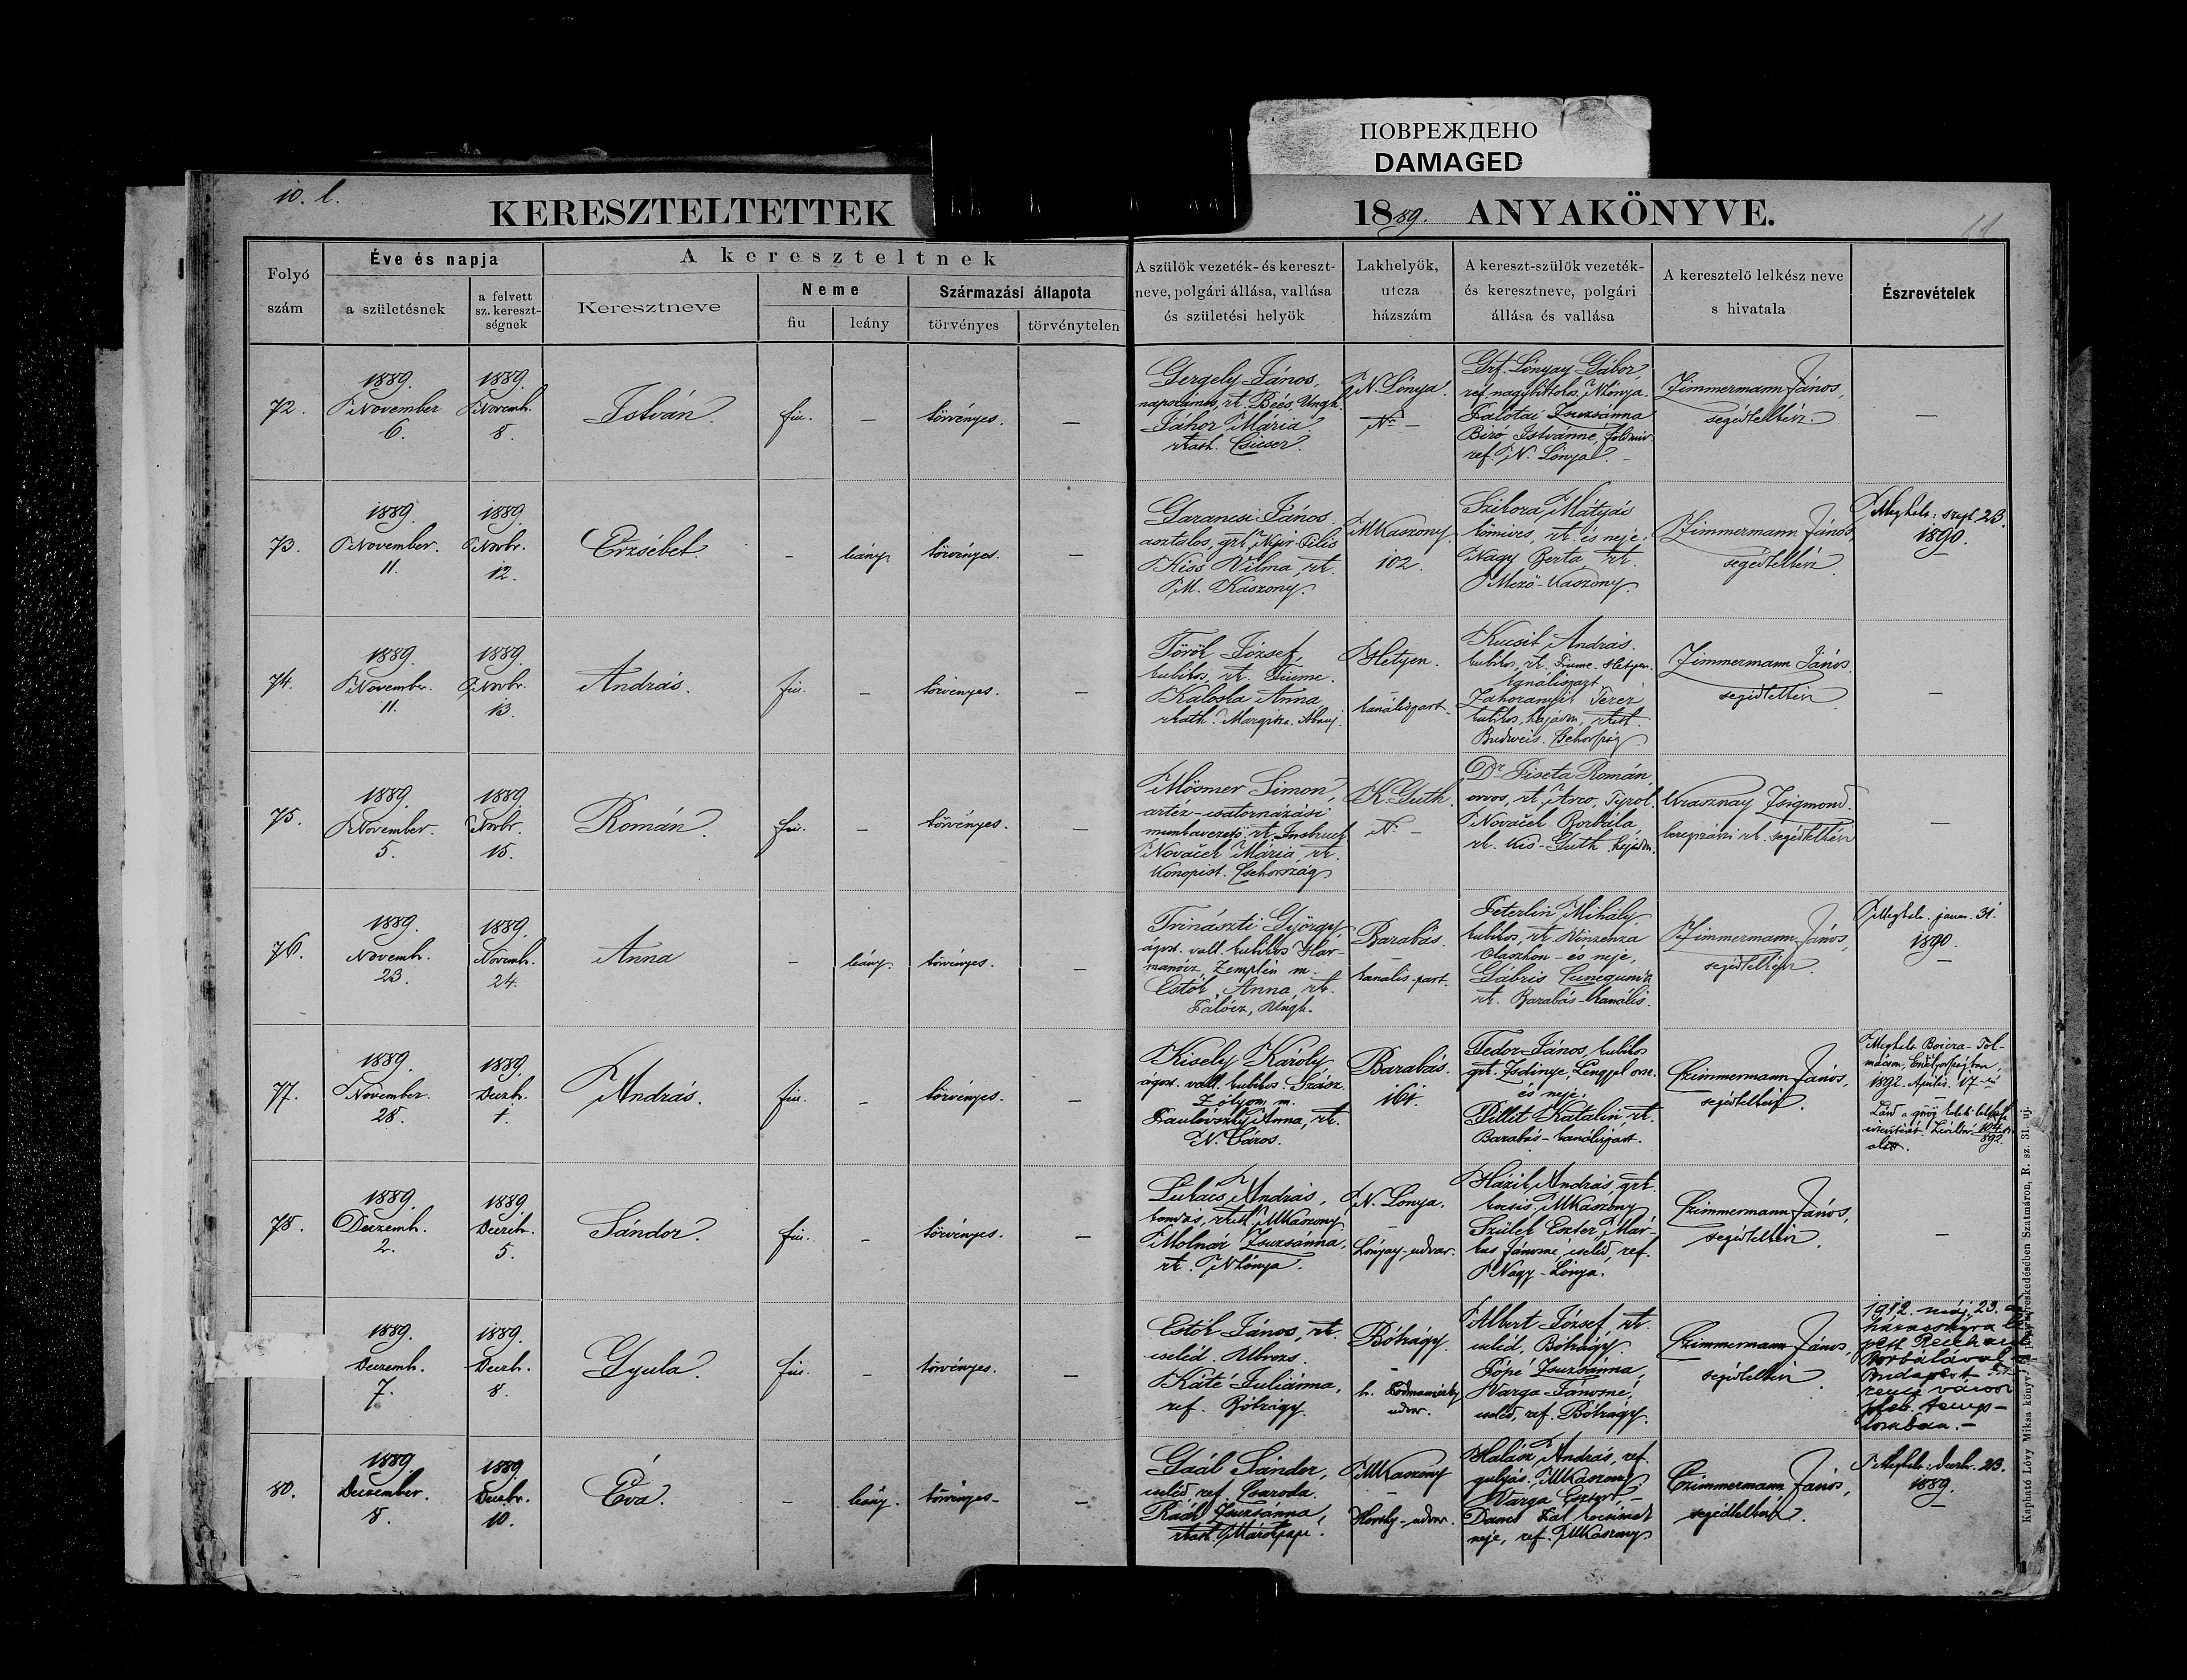 ПОВРЕЖДЕНО
DAMAGED
10. l.
KERESZTELTETTEK
1889. ANYAKÖNYVE.
11
Folyó szám
Éve és napja
a születésnek
a felvett sz. kereszt-ségnek
A kereszteltnek
Keresztneve
Neme
fiu
leány
Származási állapota
törvényes
törvénytelen
A szülők vezeték- és kereszt-
neve, polgári állása, vallása
és születési helyök
Lakhelyök,
utcza
házszám
A kereszt-szülők vezeték-
és keresztneve, polgári
állása és vallása
A keresztelő lelkész neve
s hivatala
Észrevételek
72.
1889. November 6.
1889. Novemb. 8.
István.
fiu.
–
törvényes.
–
Gergely János,
napszámos, rk. Beés, Ungh.
Jáhor Mária
rkath. Csicser.
N. Lónya.
No –
Grf. Lónyay Gábor,
ref. nagybirtokos, N.lónya.
Palotai Zsuzsánna
Biró Istvánné, földmiv.
ref. N. Lónya. –
Zimmermann János,
segédlelkész.
–
73.
1889. November. 11.
1889. Novbr. 12.
Erzsébet
–
leány.
törvényes.
–
Garancsi János.
asztalos, grk. Nyir Pilis
Kiss Vilma, rk.
M. Kaszony.
MKaszony.
102.
Szikora Mátyás
kőmives, rk. és neje:
Nagy Berta, rk.
Mező-Kaszony.
Zimmermann János,
segédlelkész.
Meghalt: szept. 23.
1890.
74.
1889. November. 11.
1889. Novbr. 13.
András.
fiu.
–
törvényes.
–
Török József,
kubikos, rk. Fiume.
Kaloska Anna
rkath. Margitza. Abauj.
Hetyen.
kanálispart.
Kucsik András.
kubikos, rk. Fiume. Hetyen.
kanálispart
Zahoranyik Teréz
kubikos, hajadon, rkath.
Budweis. Csehország.
Zimmermann János.
segédlelkész.
–
75.
1889. November. 5.
1889. Novbr. 15.
Román.
fiu.
–
törvényes.
–
Mösmer Simon,
artéz-csatornázási
munkavezető. rk. Insbruck
Novaček Mária, rk.
Konopist. Csehország.
K. Guth.
No –
Dr. Piseta Román,
orvos, rk. Arco, Tyrol.
Novaček Borbála
rk. Kis-Guth. hajadon.
Krasznay Zsigmond.
beregszászi rk. segédlelkész
–
76.
1889. Novemb. 23.
1889. Novemb. 24.
Anna
–
leány.
törvényes.
–
Trinászti György,
ágost. vall. kubikos Har-
manócz, Zemplén m.
Estók Anna, rk.
Pálócz, Ungh.
Barabás.
–
kanális-part.
Peterlin Mihály
kubikos, rk. Winzenza
Olaszhon – és neje,
Gábris Cunegunda
rk. Barabás-kanális.
Zimmermann János,
segédlelkész.
Meghalt. januar. 31.
1890.
–
77.
1889. November. 28.
1889. Deczb. 1.
András.
fiu.
–
törvényes.
–
Kisely Károly
ágost. vall. kubikos. Szász.
Zólyom m.
Paulovszky Anna, rk.
N. Sáros.
Barabás.
161.
Fedor János, kubikos
grk. Zsdinye, Lengyel orsz.
és neje:
Pillit Katalin rk.
Barabás-kanálispart.
Czimmermann János,
segédlelkész.
Meghalt Boicza-Tol-
mácson, Erdélyországban,
1892. Április. 17-én
78.
1889. Deczemb. 2.
1889. Deczb. 5.
Sándor.
fiu.
–
törvényes.
–
Lukács András,
kondás, rkath. MKaszony.
Molnár Zsuzsánna,
rk. N.lónya.
N. Lónya.
–
Lónyay-udvar.
Házik András, grk.
kocsis. MKaszony
Szülek Eszter, Már-
kus Jánosné, cseléd, ref.
Nagy-Lónya.
Czimmermann János,
segédlelkész.
–
1889. Deczemb. 7.
1889. Deczb. 8.
Gyula.
fiu.
–
törvényes.
–
Estók János, rk.
cseléd. Ubrezs.
Káté Juliánna,
ref. Bótrágy.
Bótrágy.
–
udvar.
Albert József rk.
cseléd, Bótrágy.
Pópé Zsuzsánna,
Varga Jánosné,
cseléd, ref. Bótrágy.
Czimmermann János,
segédlelkész.
1912. máj. 23.
házasságra lé-
pett
Borbálával
Budapest Fe-
renc városi
pleb. temp-
lomban. –
80.
1889 Deczember. 8.
1889. Deczbr. 10.
Éva.
–
leány.
törvényes.
–
Gaál Sándor,
cseléd, ref. Csaroda.
Rádi Zsuzsánna,
rkath. Márokpapi.
MKaszony
–
Horthy-udvar.
Halász András, ref.
gulyás. MKaszony
Varga Eszter, –
Dancs Pál kocsisnak
neje, ref. MKaszony
Czimmermann János,
segédlelkész.
Meghalt: deczb. 23.
1889.
–
Kapható Lővy Miksa könyv- és papirkereskedésében Szatmáron, R. sz. 31. uj.